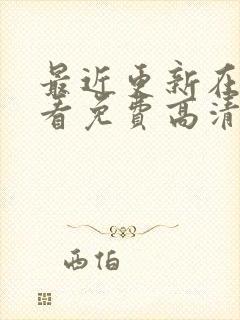 最近更新在
看免费高清
西伯